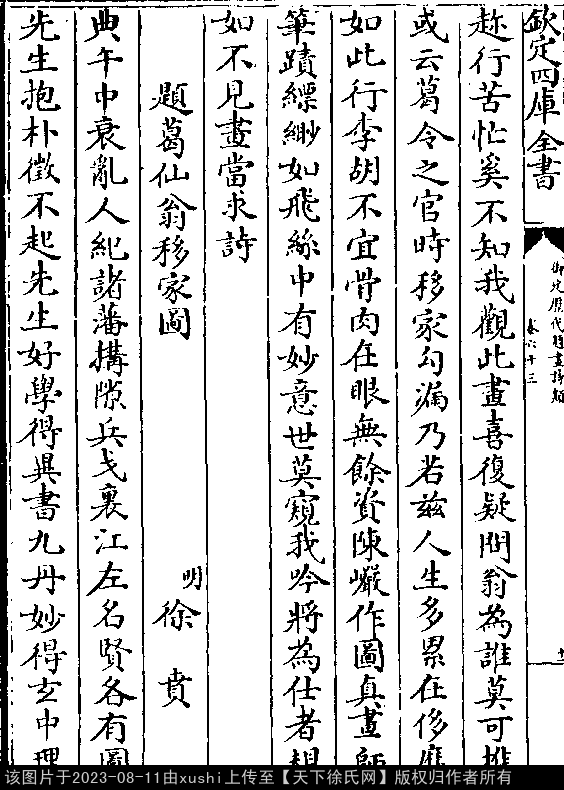 欽定四庫全書
御定歷代題畫詩類
卷六十三
趁行苦忙奚不知我觀此畫喜復疑問翁為誰莫可推
或云葛令之官時移家勾漏乃若兹人生多累在侈靡
如此行李胡不宜骨肉在眼無餘資陳巖作圖真畫師
筆蹟縹緲如飛絲中有妙意世莫窺我吟將為仕者規
如不見畫當求詩
題葛仙翁移家圖
明 徐 賁
典午中衰亂人紀諸藩搆隙兵戈裏江左名賢各有圖
先生抱朴徵不起先生好學得異書九丹妙得玄中理
该图片于2023-08-11由xushi上传至【天下徐氏网】版权归作者所有